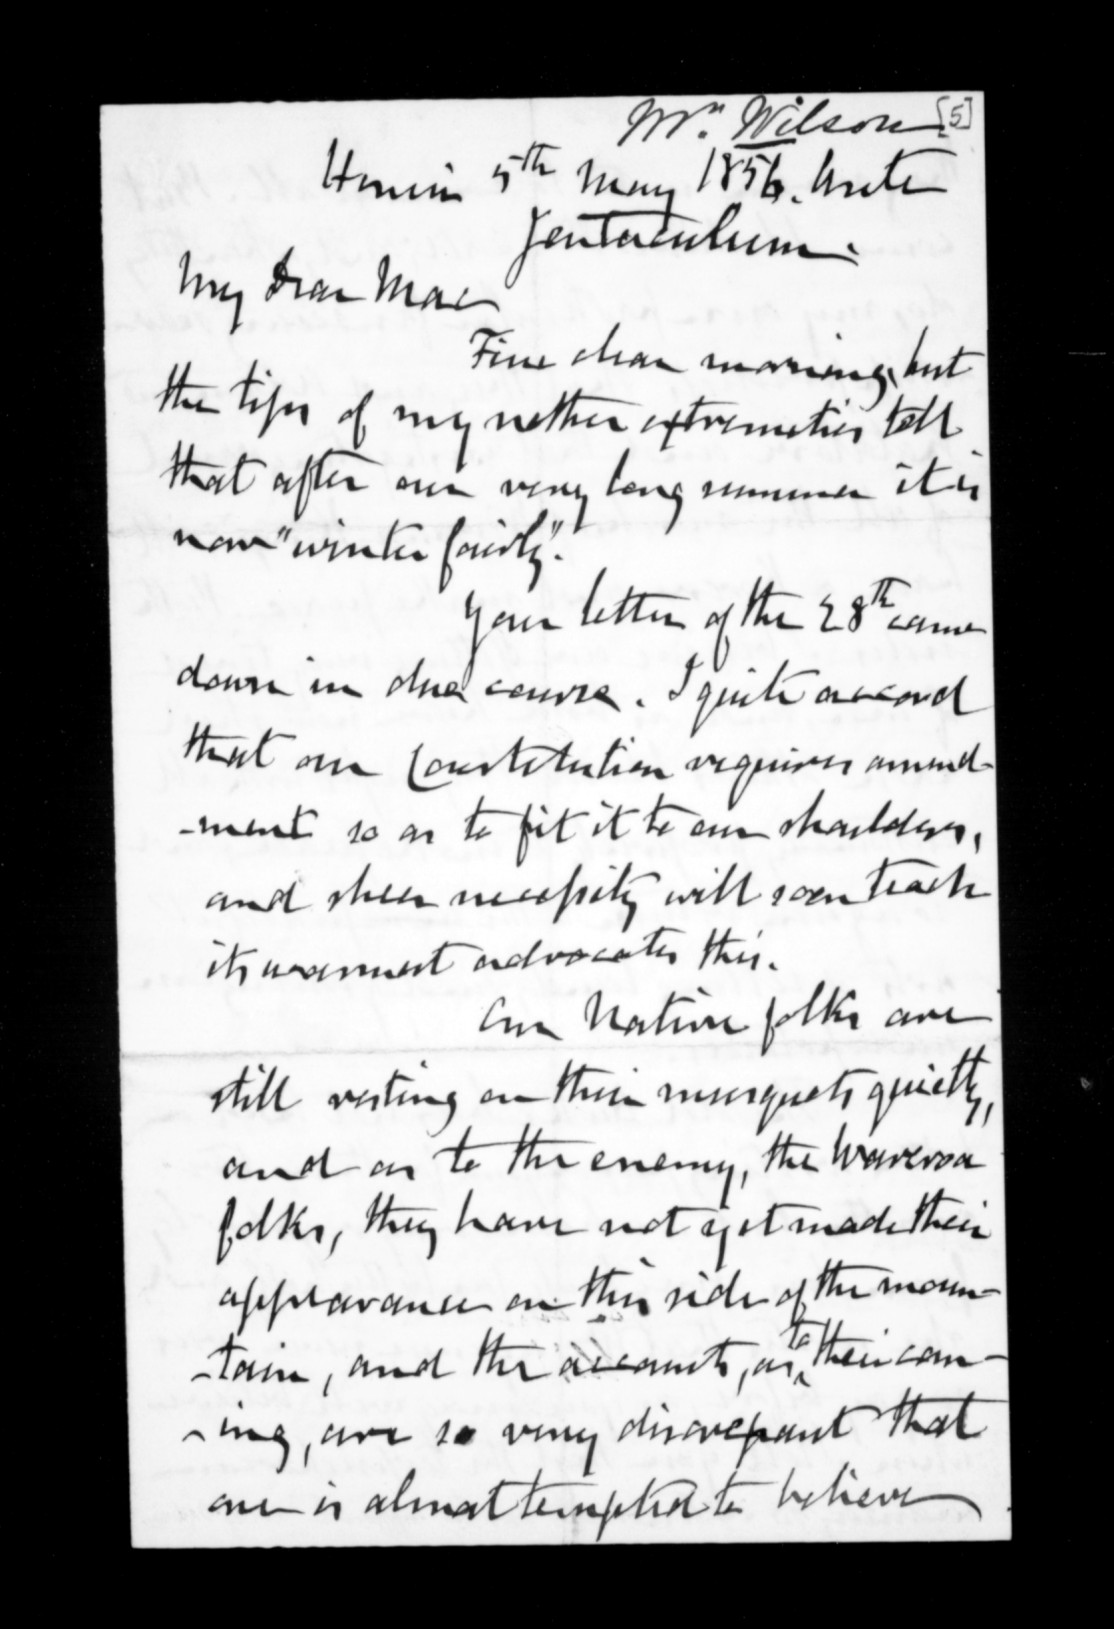 Mr. Wilson [5]
Henui 5th May 1856. Ante
Jentaculum.
My Dear Mac
Fine clear morning, but
the tips of my nether extremities tell
that after our very long summer it is
now "winter fairly".
Your letter of the 28th came
down in due course. I quite accord
that our Constitution requires amend-
-ment so as to fit it to our shoulders,
and sheer necessity will soon teach
its warmest advocates this.
Our Native folks are
still resting on their musquets quietly,
and as to the enemy, the Wareroa
folks, they have not yet made their
appearance on this side of the moun-
-tain, and the accounts, as to their com-
-ing, are so very discrepant that
one is almost tempted to believe